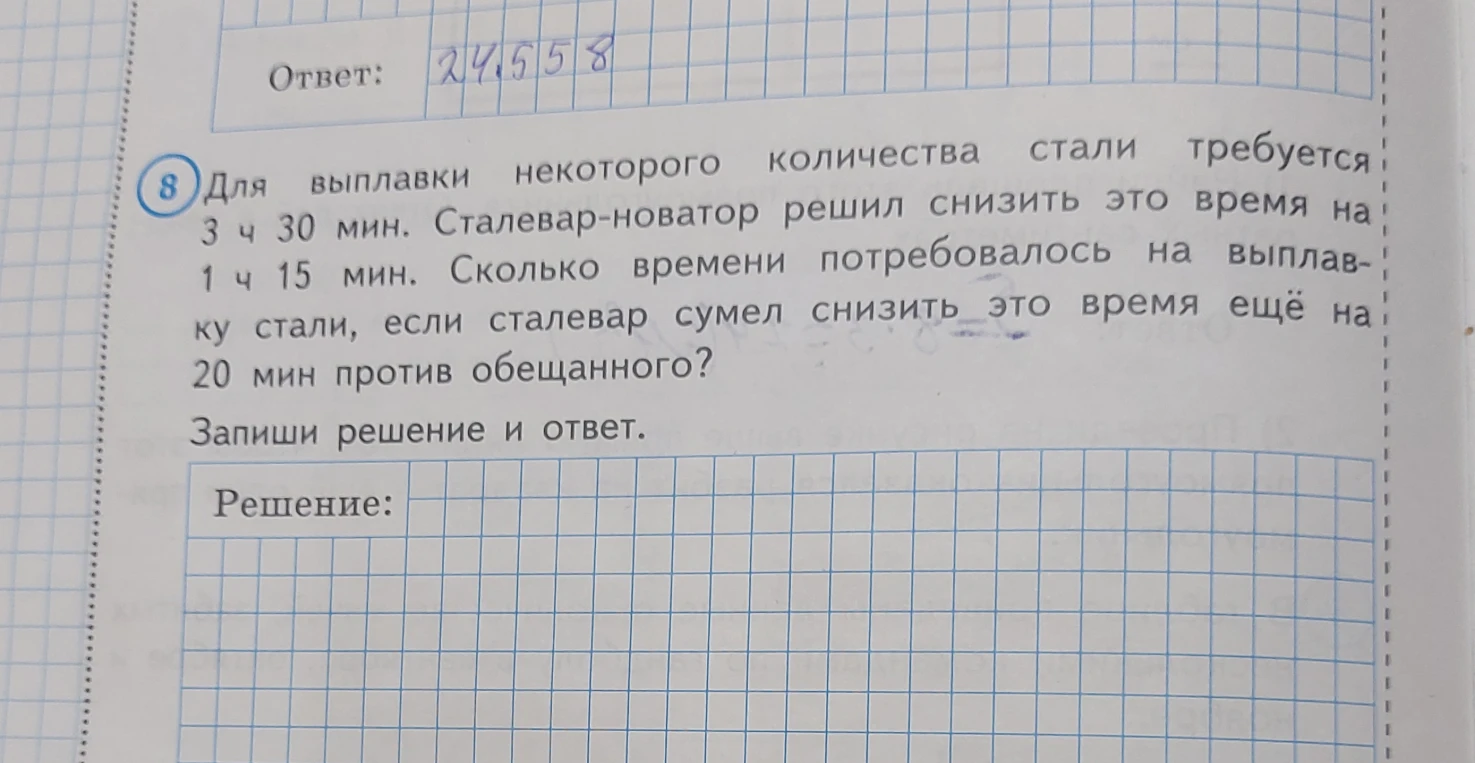 Ответ: 24558
8 Для выплавки некоторого количества стали требуется
3 ч 30 мин. Сталевар-новатор решил снизить это время на
1 ч 15 мин. Сколько времени потребовалось на выплав-
ку стали, если сталевар сумел снизить это время ещё на
20 мин против обещанного?
Запиши решение и ответ.
Решение: